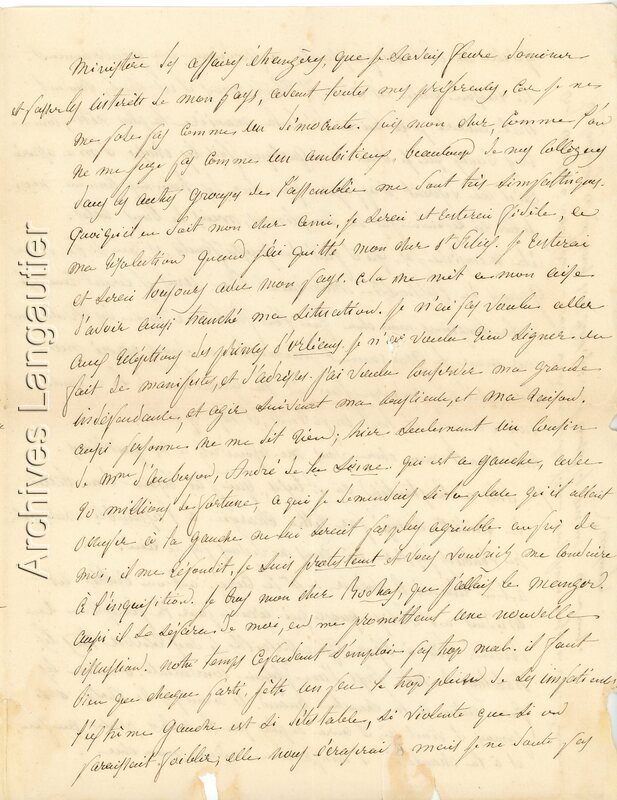 Ministère des affaires étrangères, que je savais heure
et passer les intérêts de mon pays, avant toutes mes préférences, car je ne
me pose pas comme un démocrate. puis mon cher, comme l'on
ne me juge pas comme un ambitieux, beaucoup de mes collègues
dans les autres groupes de l'assemblée me sont très simpathiques.
Quoiqu'il en soit mon cher ami, je serai et resterai fidèle, à
ma résolution quand j'ai quitté mon cher St Félix. je resterai
et serai toujours avec mon pays. cela me met à mon aise
d'avoir ainsi tranché ma situation. Je n'ai pas voulu aller
aux réceptions des princes d'orléans. je n'ai voulu rien signer en
fait de manifestes, et d'adresses. j'ai voulu conserver ma grande
indépendante, et agir suivant ma conscience, et ma raison.
aussi personne ne me dit rien; hier seulement un cousin
de mme d'auberjon, André de la
qui est à gauche, avec
90 millions de fortune, à qui je demandais si la place qu'il allait
occuper à la gauche ne lui serait pas plus agréable auprès de
moi, il me répondit, je suis protestant et vous voudriez me conduire
À l'inquisition. Je crus mon cher Rochas, que j'allais le manger.
aussi il se sépara de moi, en me promettant une nouvelle
discussion. notre temps cependant s'emploie pas trop mal. il faut
bien que chaque parti jette un peu le trop plein de ses impatiences
l'extrême gauche est si détestable, si violente que si on
paraissait faibler, elle nous écraserai. mais je ne saute pas
Archives Langautier